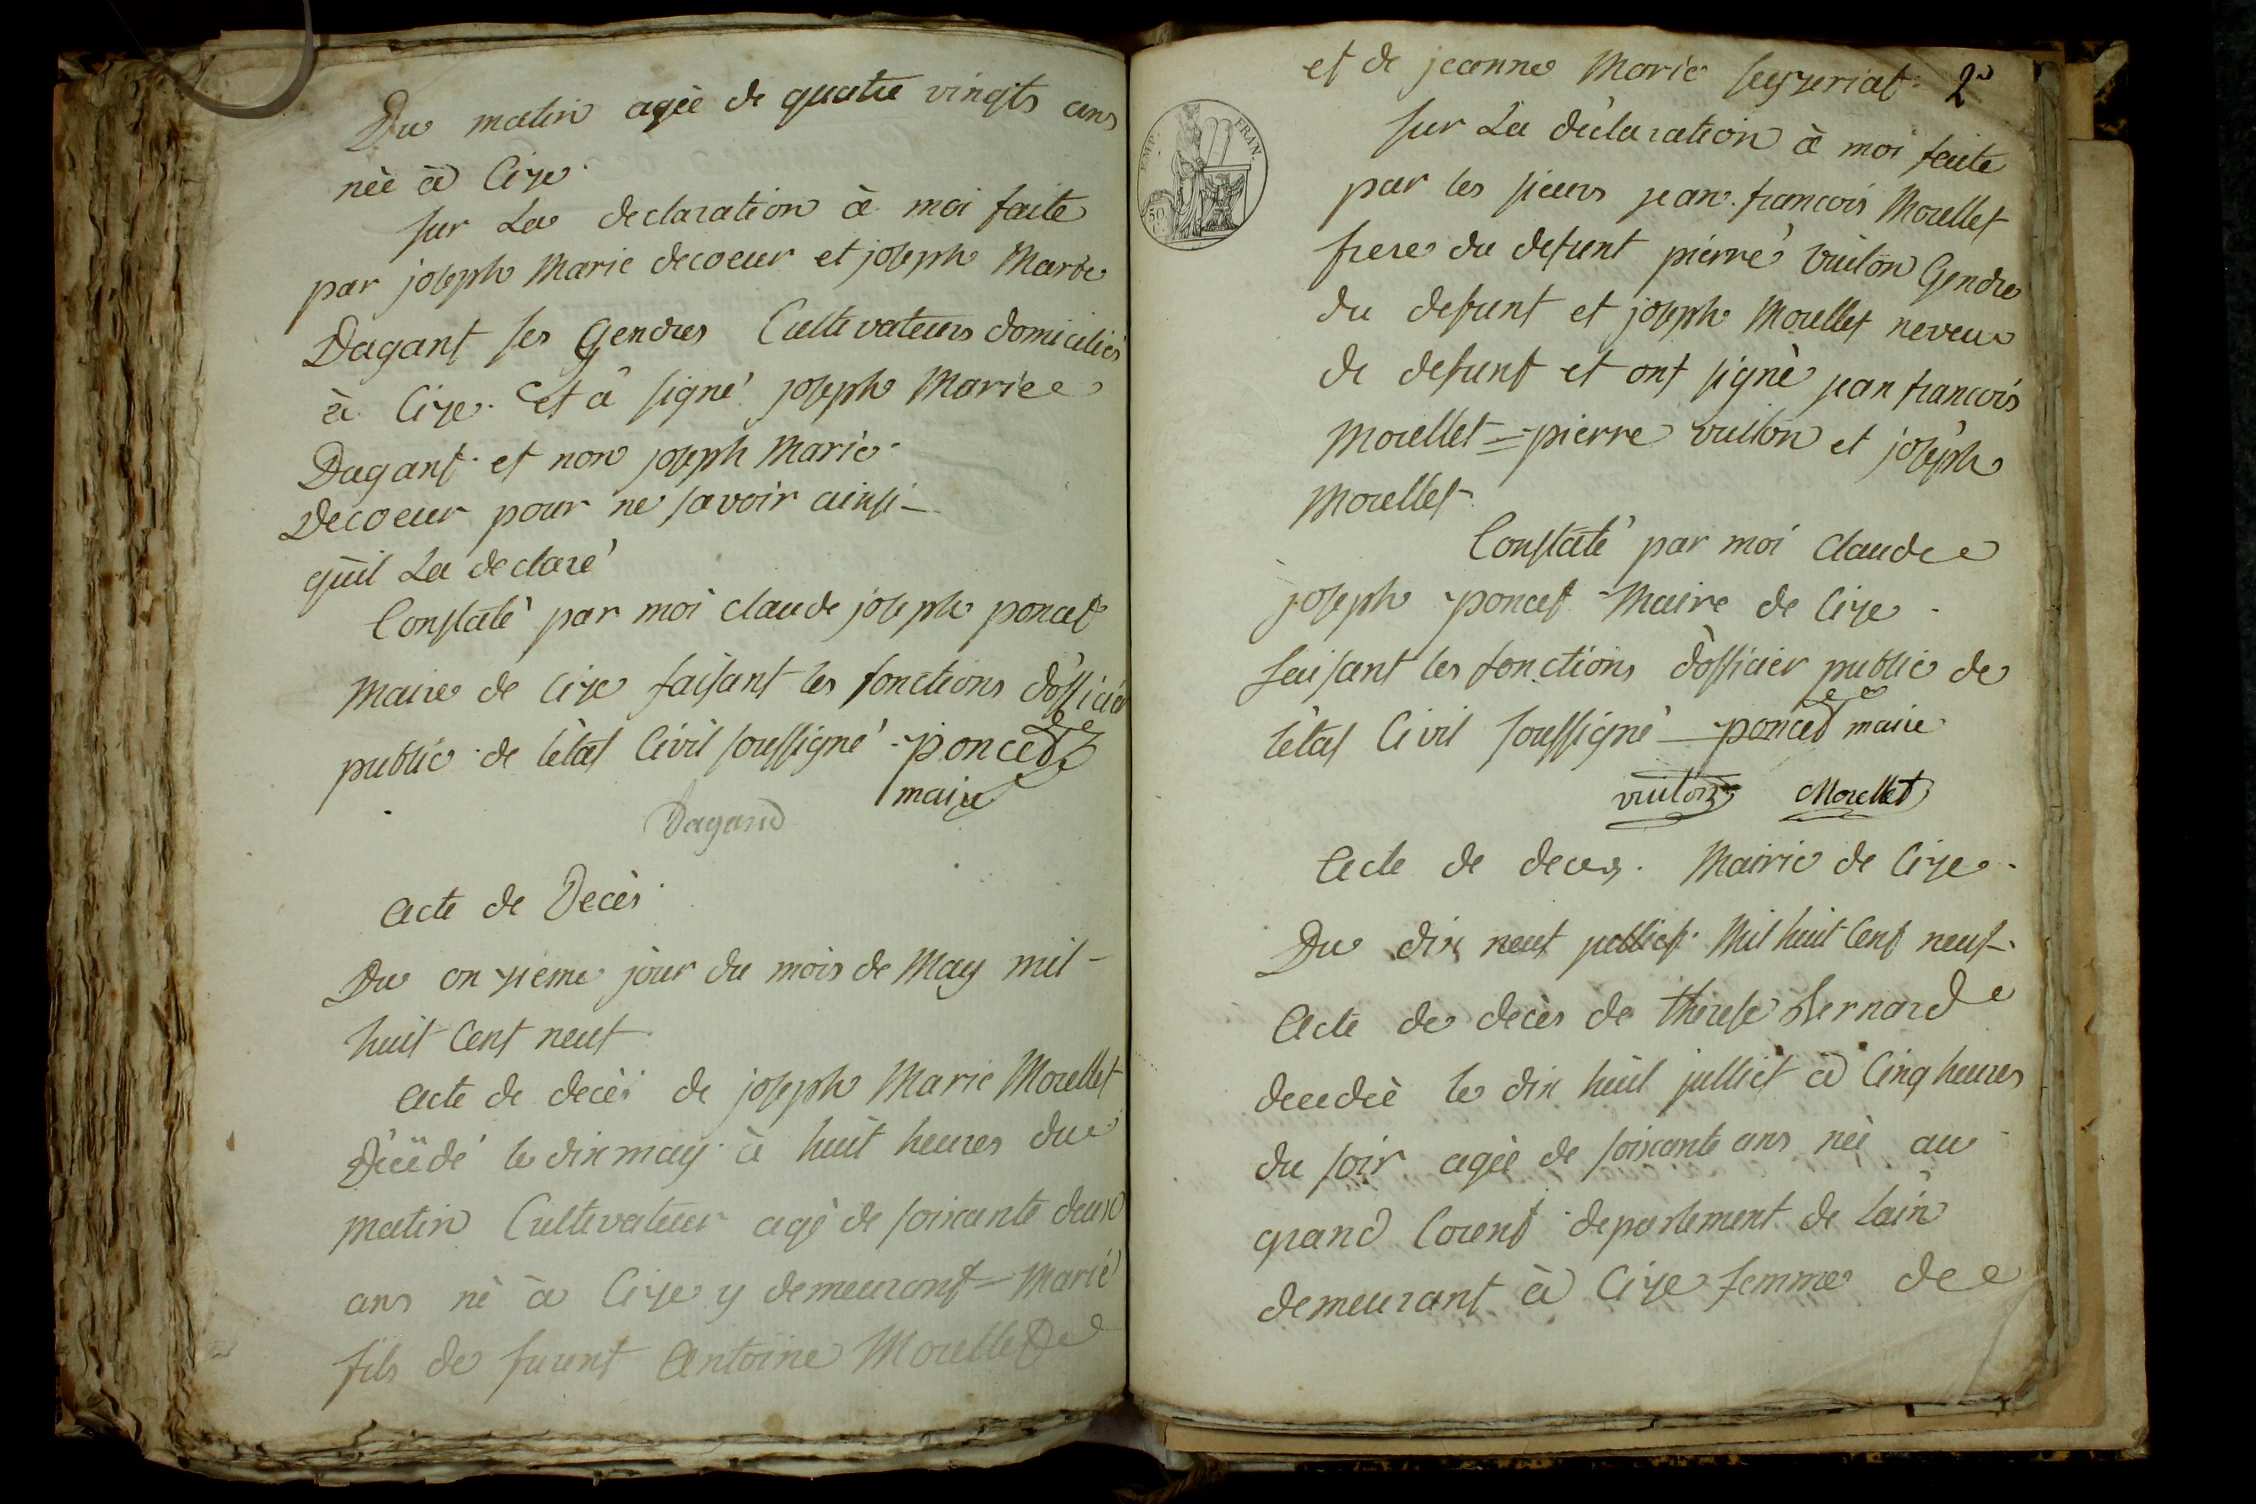 Du matin agée de quatre vingts ans
née à Cize
sur La declaration à moi faite
par joseph Marie decoeur et joseph Marie
Dagant ses Gendres Cultivateurs domiciliés
à Cize. et à signé joseph Marie
Dagant et non joseph Marie
Decoeur pour ne savoir ainsi
quil La declaré
Constaté par moi claude joseph poncet
Maire de Cize faisant les fonctions d'officier
public de l'état Civil soussigné poncet
maire
Dagand
Acte de Decès
Du onzième jour du mois de May mil
huit Cent neuf
Acte de decès de joseph Marie Morellet
Décédé le dix may à huit heures du
matin Cultivateur agé de soixante deux
ans né à Cize y demeurant = Marié
fils de furent Antoine Morellet
et de jeanne Marie seyzeriat. 2
EMP. FRAN.
50
C.
sur La déclaration à moi faite
par les sieurs jean françois Morellet
frere du defunt pierre vuiton Gendre
du defunt et joseph Morellet neveu
de defunt et ont signé jean francois
Morellet = pierre vuiton et joseph
Morellet
Constaté par moi claude
joseph poncet Maire de Cize
faisant les fonctions d'officier public de
l'état Civil soussigné poncet maire
vuiton Morellet
Acte de deces. Mairie de Cize.
Du dix neuf julliet Mil huit Cent neuf
Acte de decès de therese Bernard
decedée le dix huit julliet à Cinq heures
du soir agée de soixante ans née au
grand Corent departement de L'ain
demeurant à Cize femme de